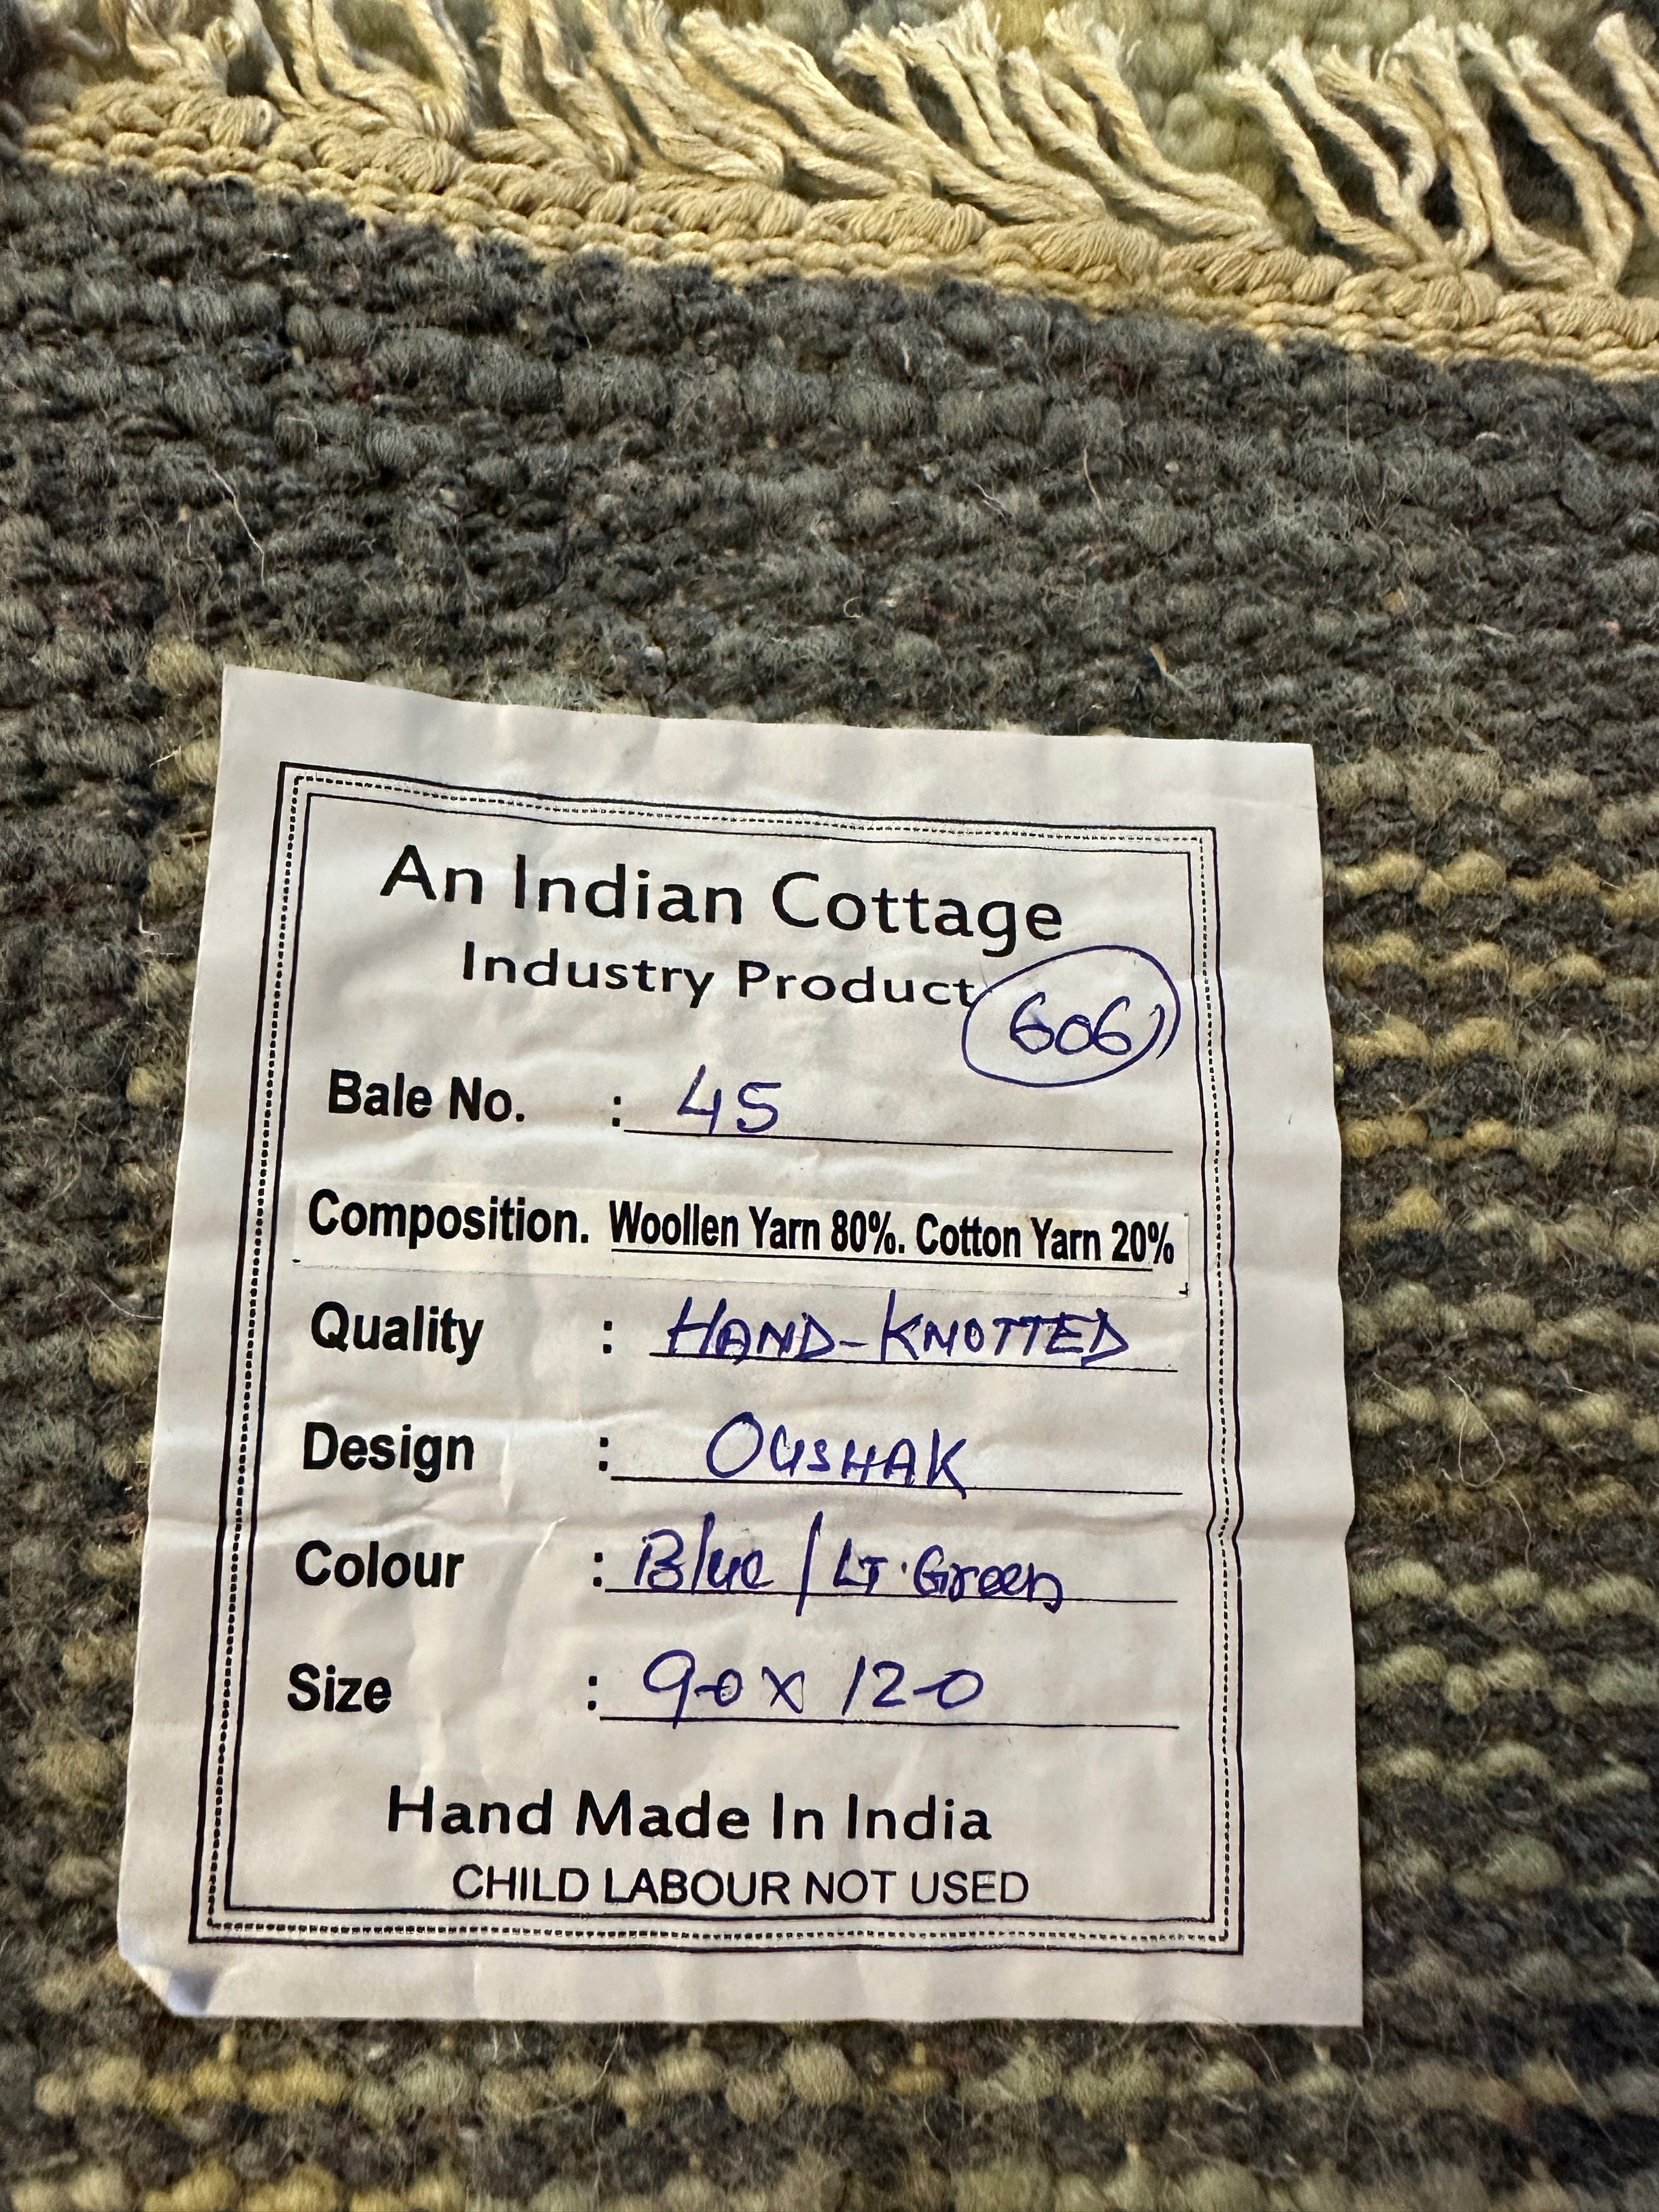 An Indian Cottage
Industry Product
606
Bale No. : 45
Composition. Woollen Yarn 80%. Cotton Yarn 20%
Quality : HAND-KNOTTED
Design : OUSHAK
Colour : Blue / LT. Green
Size : 9-0 x 12-0
Hand Made In India
CHILD LABOUR NOT USED